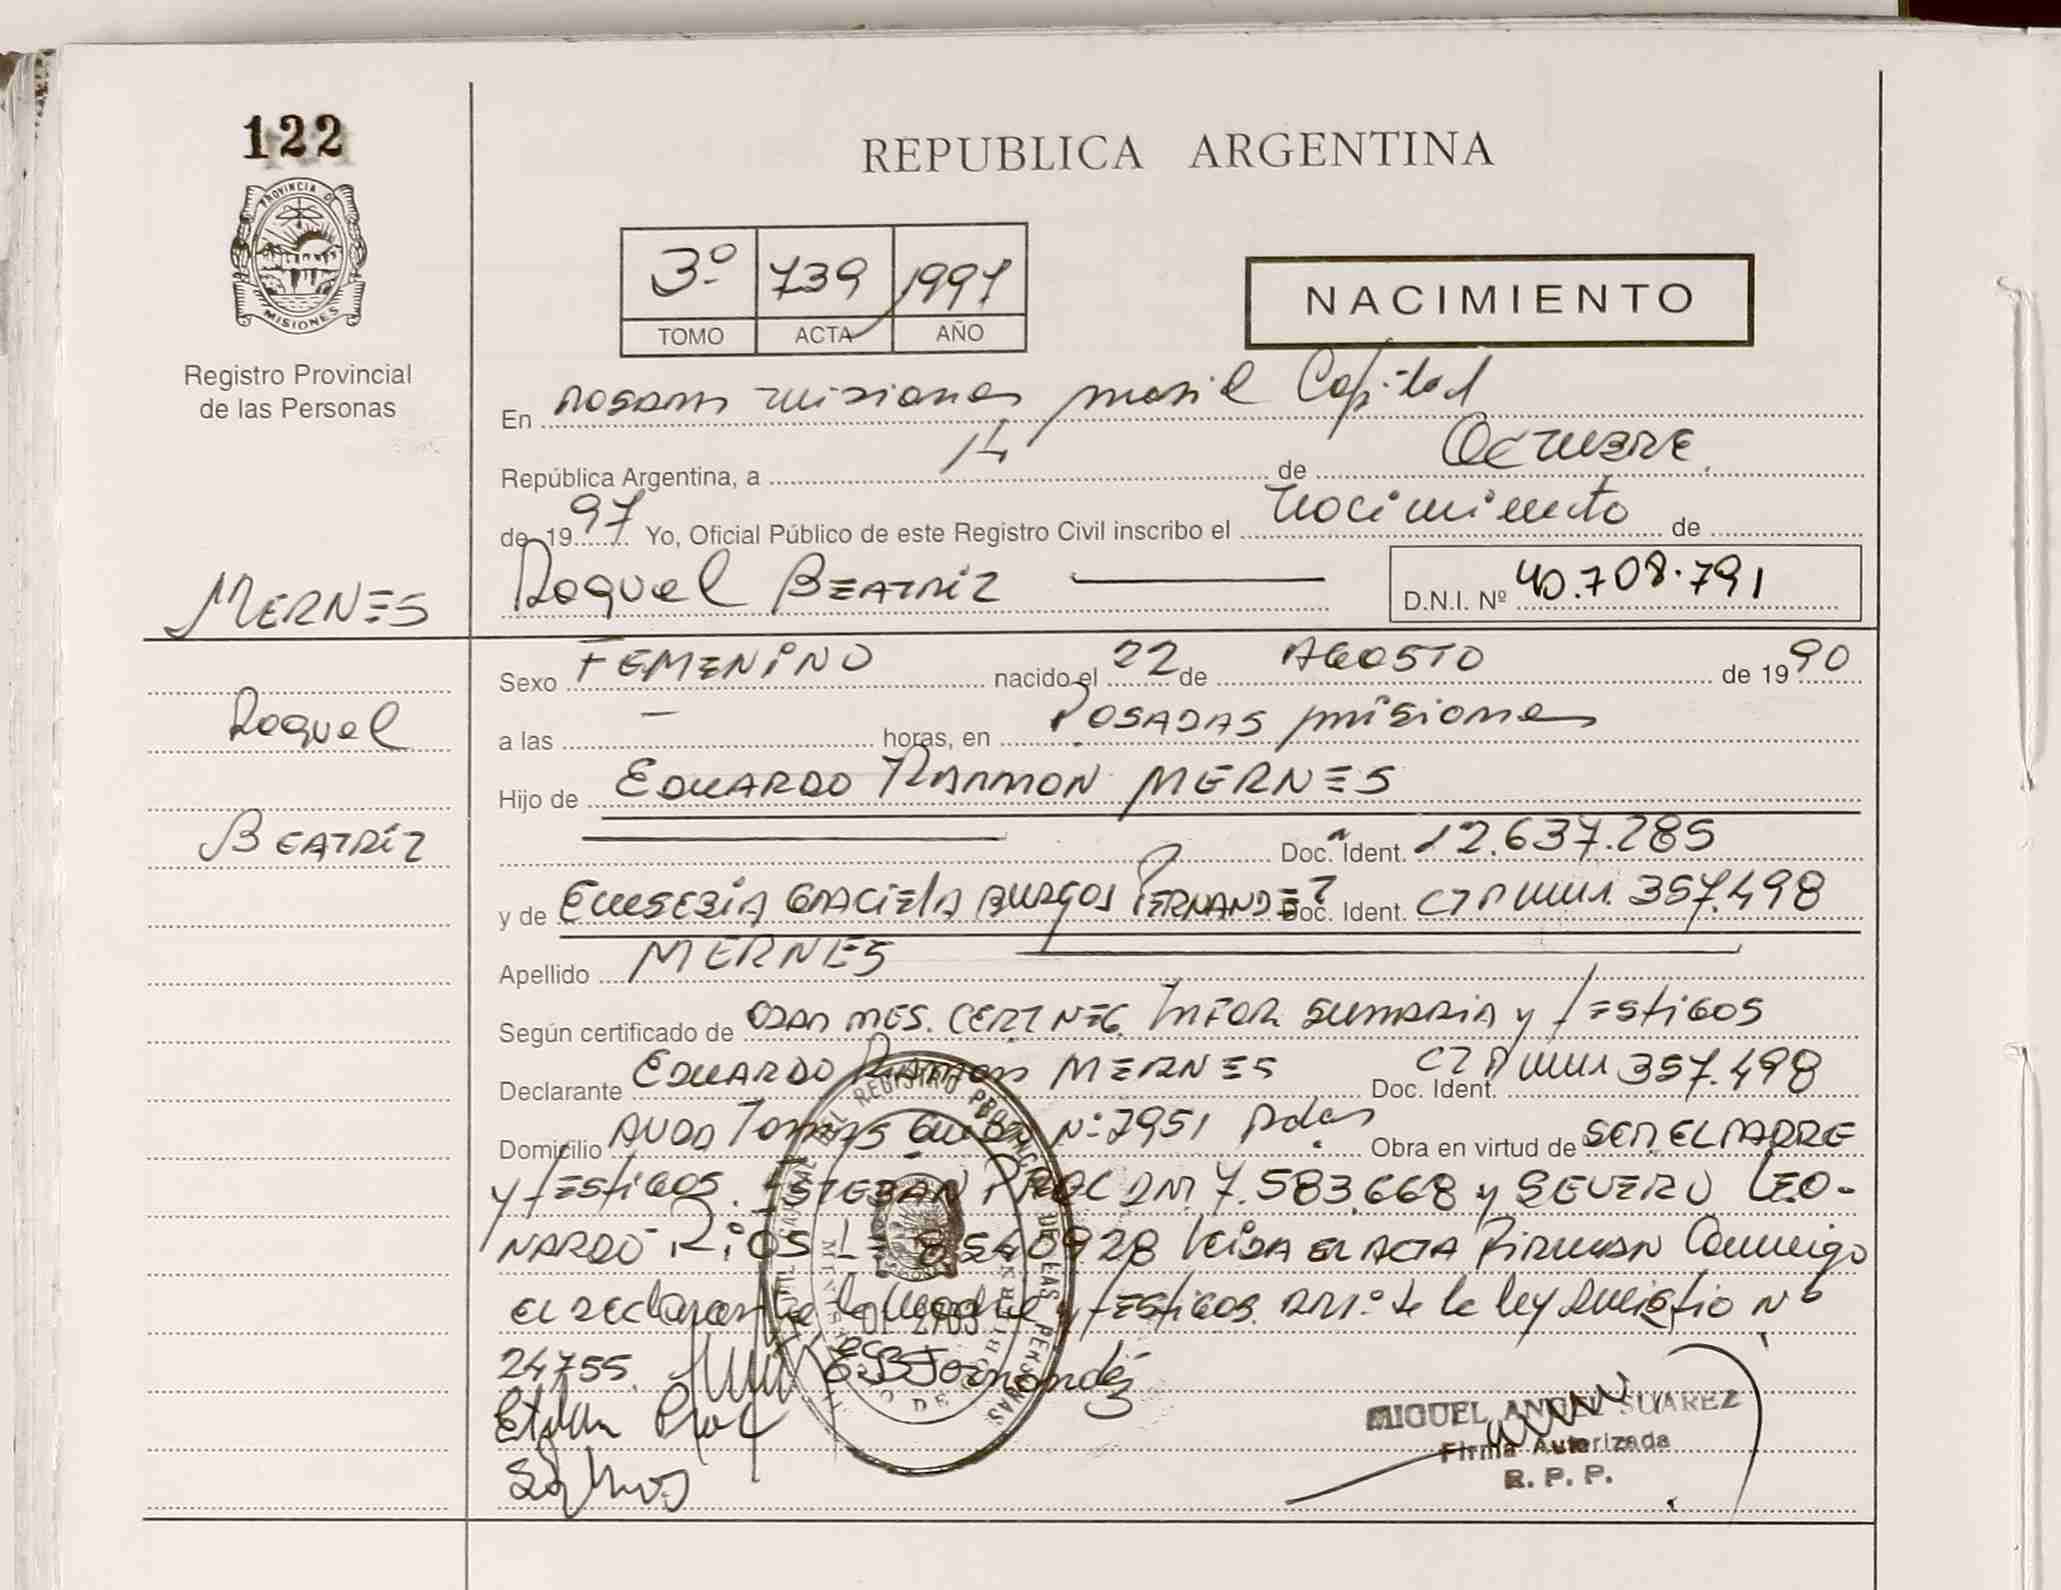 122
PROVINCIA DE
MISIONES
Registro Provincial
de las Personas
REPUBLICA ARGENTINA
3º 739 1997
TOMO ACTA AÑO
NACIMIENTO
En Posadas misiones Capital
República Argentina, a 14 de OCTUBRE
de 1997 Yo, Oficial Público de este Registro Civil inscribo el nacimiento de
MERNES
Raquel BEATRIZ D.N.I. Nº 40.708.791
Sexo FEMENINO nacido el 22 de AGOSTO de 1990
Raquel
a las — horas, en POSADAS misiones
Hijo de EDUARDO RAMON MERNES
BEATRIZ
Doc. Ident. 12.637.285
y de EUSEBIA GRACIELA BURGOS FERNANDEZ Doc. Ident. 357.498
Apellido MERNES
Según certificado de CERT NEG. INFOR SUMARIA y TESTIGOS
Declarante EDUARDO RAMON MERNES Doc. Ident. 357.498
Domicilio AVDA Tomas Guido Nº 7951 Pdas Obra en virtud de SER EL PADRE
y TESTIGOS. ESTEBAN PROC DNI 7.583.668 y SEVERO LEO-
NARDO RIOS LE 8540928 LEIDA EL ACTA FIRMAN Conmigo
EL declarante la Madre y TESTIGOS. de la ley Nº
24755.
EB Fernandez
Esteban Proc
MIGUEL ANGEL SUAREZ
Firma Autorizada
R. P. P.
REGISTRO PROVINCIAL DE LAS PERSONAS
MINISTERIO DE GOBIERNO